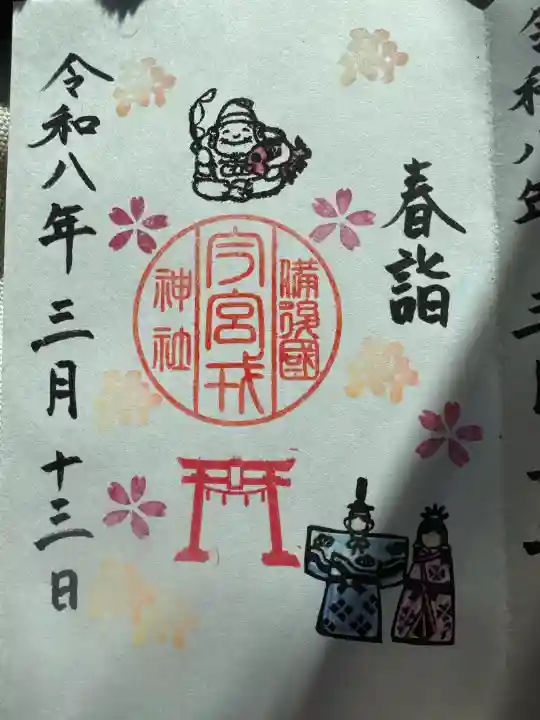 春詣
備後國
今宮戎
神社
令和八年 三月 十三日
令和八年 三月